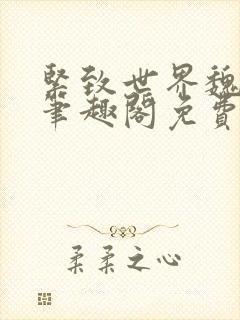 緊致世界魏
筆趣閣免費
柔柔之心